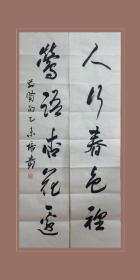 人行春色裡
鶯語杏花邊
乙未